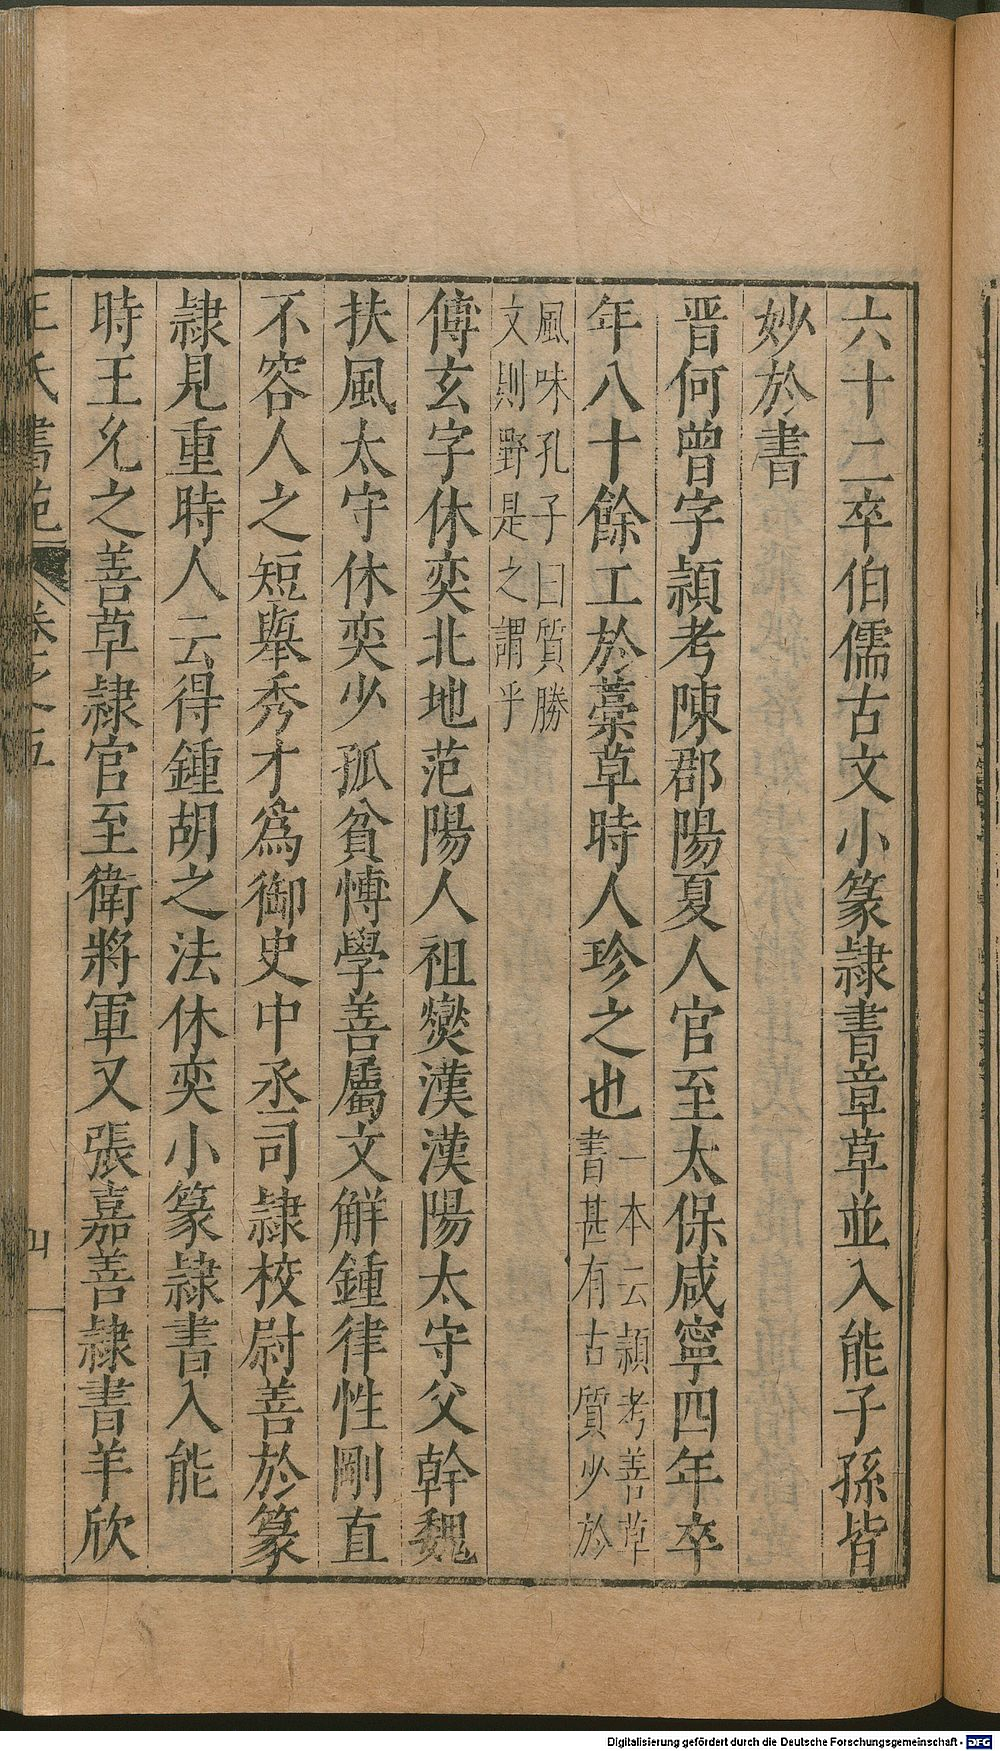 六十二卒伯儒古文小篆隷書章草並入能子孫皆
妙於書
晋何曾字頴考陳郡陽夏人官至太保咸寧四年卒
年八十餘工於藁草時人珍之也一本云頴考善草
書甚有古質少於
風味孔子曰質勝
文則野是之謂乎
傅玄字休奕北地范陽人祖爕漢漢陽太守父幹魏
扶風太守休奕少孤貧愽學善屬文解鍾律性剛直
不容人之短舉秀才為御史中丞司隷校尉善於篆
隷見重時人云得鍾胡之法休奕小篆隷書入能
時王允之善草隷官至衛將軍又張嘉善隷書羊欣
王氏書苑
卷之五
四
Digitalisierung gefördert durch die Deutsche Forschungsgemeinschaft - DFG